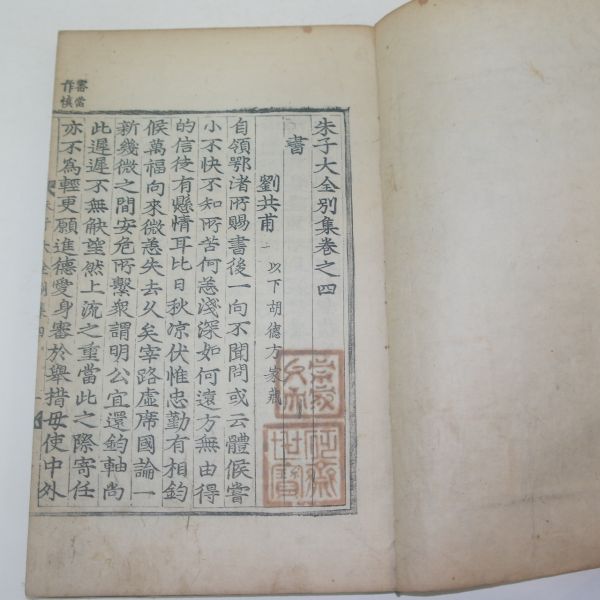 朱子大全別集卷之四
書
劉共甫 一 以下胡德方家藏
自領鄂渚所賜書後一向不聞問或云體候嘗
小不快不知所苦何恙淺深如何遠方無由得
的信徒有懸情耳比日秋凉伏惟忠勤有相鈞
候萬福向來微恙失去久矣宰路虛席國論一
新幾微之間安危所繫衆謂明公宜還鈞軸尚
此遲遲不無觖望然上流之重當此之際寄任
亦不爲輕更願進德愛身審於擧措毋使中外
審當
作愼